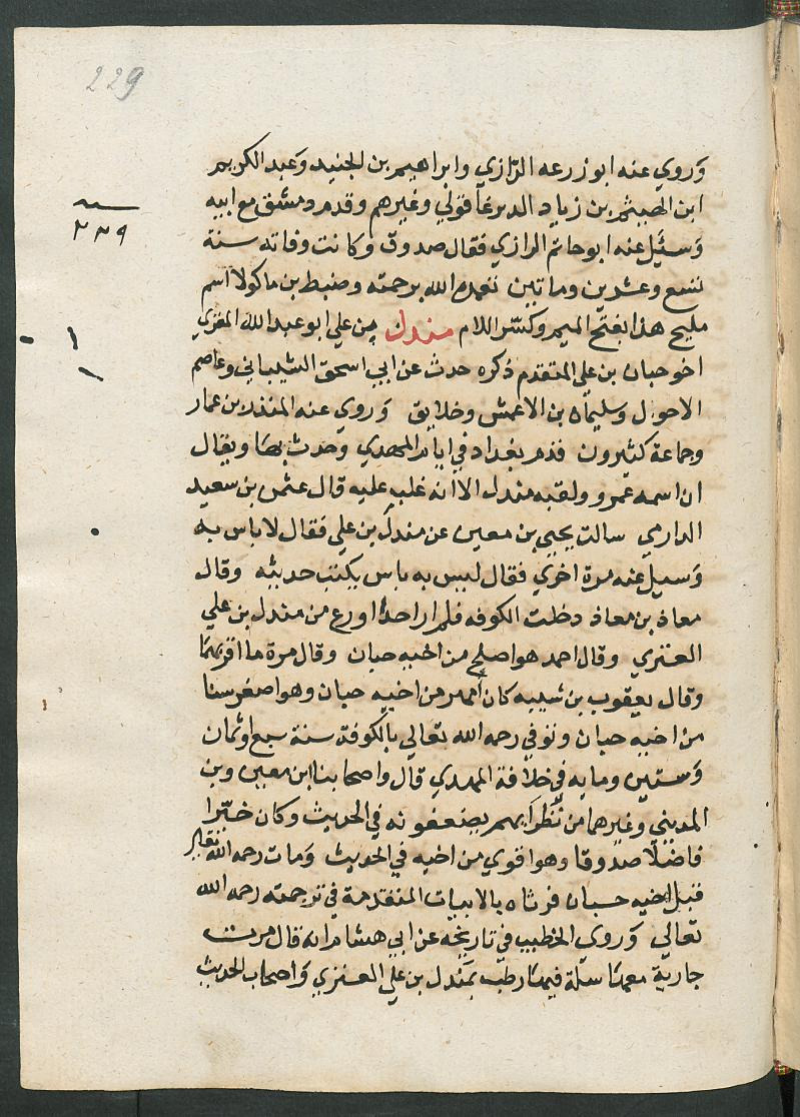 229
٢٢٩
وروي عنه ابو زرعه الرّازي وابراهيم بن الجنيد وعبد الكريم
ابن الهيثم بن زياد الديرعاقولي وغيرهم وقدم دمشق مع ابيه
وسئل عنه ابو حاتم الرازي فقال صدوق وكانت وفاته سنة
تسع وعشرين وماتين تغمده الله برحمته وضبط بن ماكولا اسم
مليح هذا بفتح الميم وكسر اللام مندل بن علي ابو عبد الله العنزي
اخو حبان بن علي المتقدم ذكره حدث عن ابي اسحق الشيباني وعاصم
الاحول وسليمان بن الاعمش وخلايق وروي عنه المنذر بن عمار
وجماعة كثيرون قدم بغداد في ايام المهدي وحدث بها ويقال
ان اسمه عمرو ولقبه مندل الا انه غلب عليه قال عثمن بن سعيد
الدارمي سالت يحيي بن معين عن مندل بن علي فقال لا باس به
وسيل عنه مرة اخري فقال ليس به باس يكتب حديثه وقال
معاذ بن معاذ دخلت الكوفه فلم ار احدا اورع من مندل بن علي
العنزي وقال احمد هو اصلح من اخيه حبان وقال مرة ما اقربهما
وقال يعقوب بن شيبه كان اشهر من اخيه حبان وهو اصغر سنا
من اخيه حبان وتوفي رحمه الله تعالي بالكوفة سنة سبع او ثمان
وستين ومايه في خلافة المهدي قال واصحابنا ابن معين وبن
المديني وغيرهما من نظرايهم يضعفونه في الحديث وكان خيّرا
فاضلا صدوقا وهو اقوي من اخيه في الحديث ومات رحمه الله تعالي
قبل اخيه حبان فرثاه بالابيات المتقدمة في ترجمته رحمه الله
تعالي وروي الخطيب في تاريخه عن ابي هشام انه قال مرت
جارية معها سلة فيها رطب بمندل بن علي العنزي واصحاب الحديث